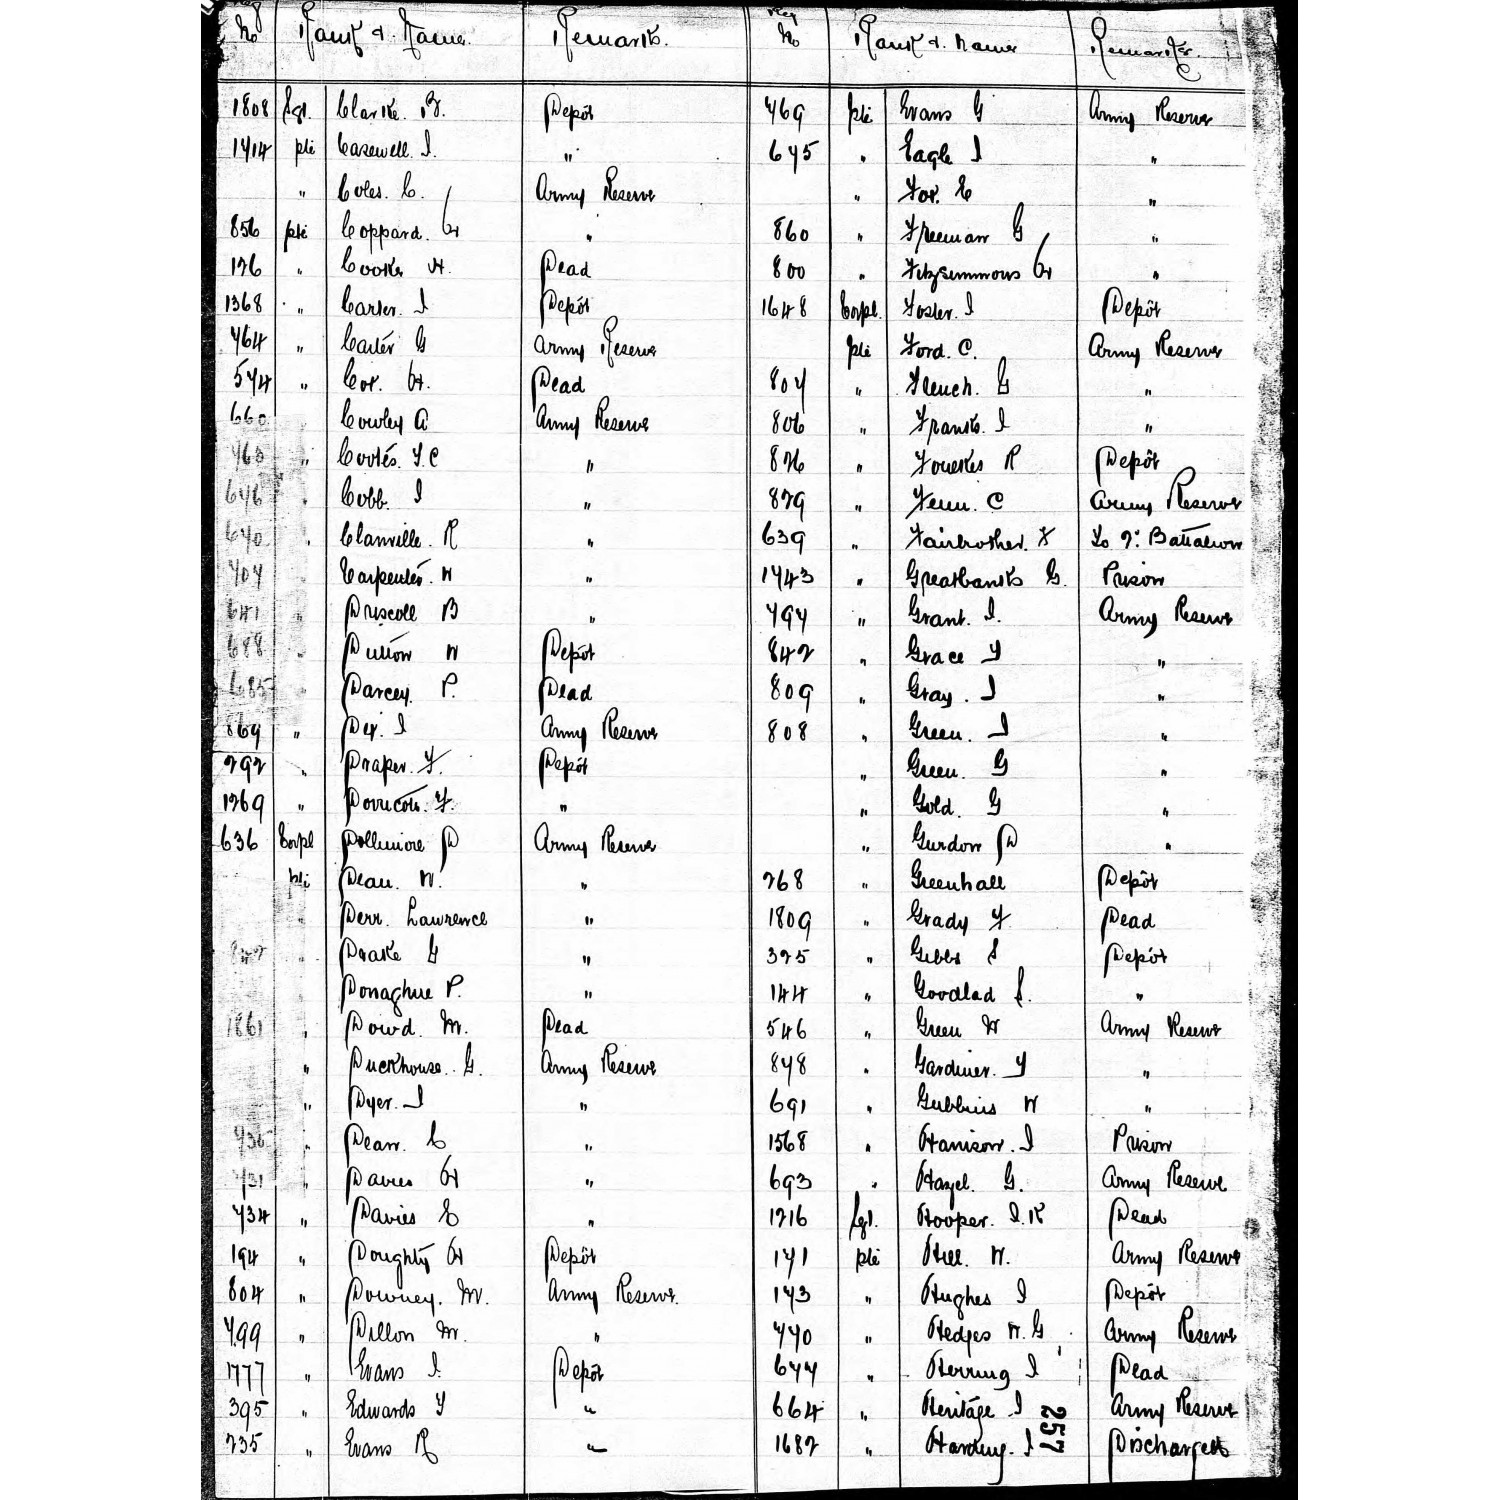 Reg No Rank & Name. Remarks.
1808 Sgt. Clarke. B. Depôt
1414 pte Casewell. J. "
" Coles. C. Army Reserve
856 pte Coppard. H "
126 " Cooke H. Dead
1368 " Carter. J Depôt
464 " Carter G Army Reserve
574 " Cox. H. Dead
660 Cowley A Army Reserve
463 " Cootes. F.C "
646 " Cobb. J "
640 " Clanville. R "
Carpenter. W "
641 " Driscoll B "
688 " Dutton W Depôt
685 Darcey. P. Dead
869 " Dex. J Army Reserve
292 " Draper. F. Depôt
1269 " F. "
636 Corpl Dollimore D Army Reserve
pte Dean. W. "
Derr. Lawrence "
" Drake G "
Donaghue P. "
1861 " Dowd. M. Dead
" Duckhouse. G. Army Reserve
" Dyer. J "
" Dean. C "
431 " Davies H "
434 " Davies E "
194 " Doughty H Depôt
804 " Downey. M. Army Reserve.
499 " Dillon M. "
1777 " Evans J. Depôt
395 " Edwards T "
235 " Evans R "
Reg No Rank & Name Remarks.
469 pte Evans G Army Reserve
645 " Eagle J "
" Fox. E "
860 " Freeman G "
800 " Fitzsimmons H "
1648 Corpl. Foster. J Depôt
pte Ford. C. Army Reserve
804 " French. G "
806 " Franks. J "
826 " R Depôt
829 " Fenn. C Army Reserve
639 " Fairbrother. F To 2: Battalion
1443 " Greatbanks G. Prison
494 " Grant. J. Army Reserve
842 " Grace T "
809 " Gray. J "
808 " Green. J "
" Green. G "
" Gold. G "
" Gurdon D "
268 " Greenhall Depôt
1809 " Grady F. Dead
325 " Gibbs S Depôt
144 " Goodlad S. "
546 " Green W Army Reserve
848 " Gardiner. T "
691 " Gubbins W "
1568 " Harrison. J Prison
693 " Hazel. G. Army Reserve
1216 Sgt. Hooper. J.K Dead
141 pte Hill. W. Army Reserve
143 " Hughes J Depôt
440 " Hedges W.G Army Reserve
644 " Herring J Dead
664 " Heritage J Army Reserve
1682 " Harding. J Discharged
257